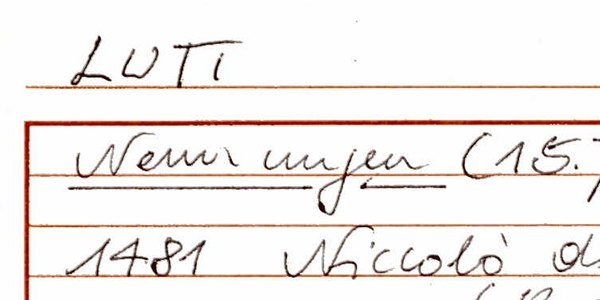 LUTI
Nennungen (15.
1481 Niccolò d